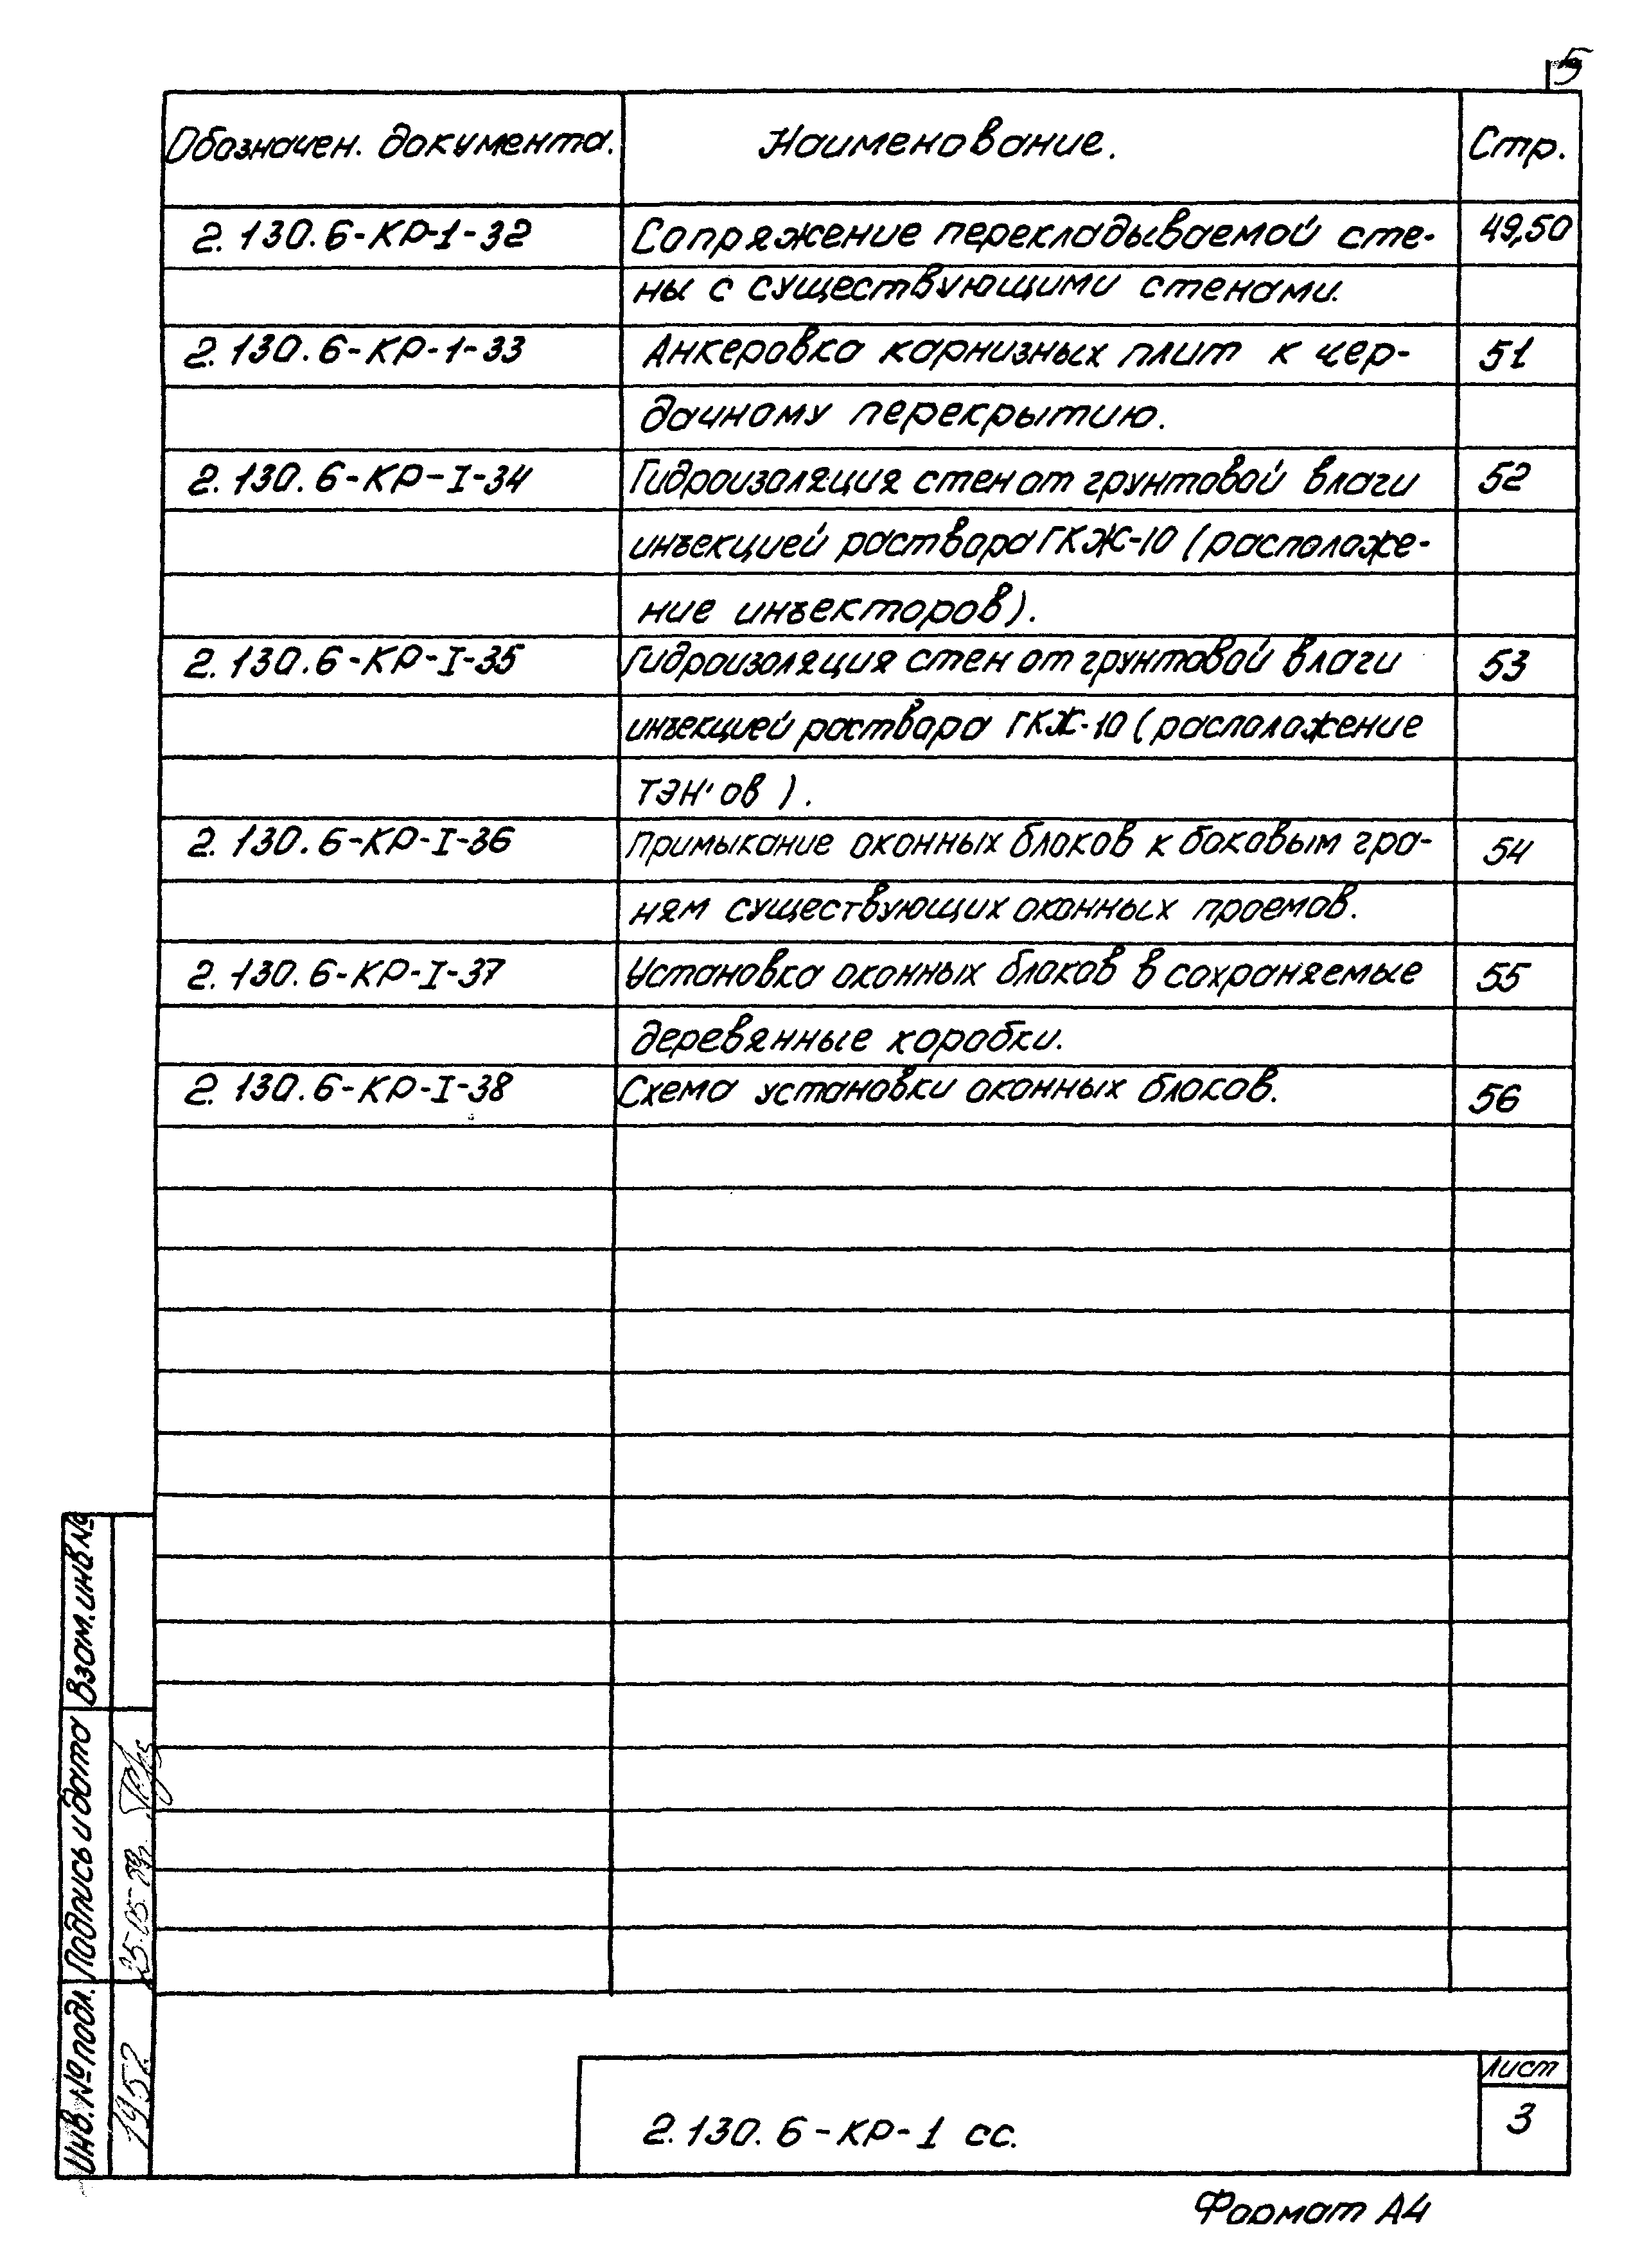 5
Обозначен. документа. Наименование. Стр.
2.130.6-КР-1-32 Сопряжение перекладываемой сте- 49,50
ны с существующими стенами.
2.130.6-КР-1-33 Анкеровка карнизных плит к чер- 51
дачному перекрытию.
2.130.6-КР-I-34 Гидроизоляция стен от грунтовой влаги 52
инъекцией раствора ГКЖ-10 (расположе-
ние инъекторов).
2.130.6-КР-I-35 Гидроизоляция стен от грунтовой влаги 53
инъекцией раствора ГКЖ-10 (расположение
ТЭН'ов).
2.130.6-КР-I-36 Примыкание оконных блоков к боковым гра- 54
ням существующих оконных проемов.
2.130.6-КР-I-37 Установка оконных блоков в сохраняемые 55
деревянные коробки.
2.130.6-КР-I-38 Схема установки оконных блоков. 56
Взам. инв №
Подпись и дата
Инв. № подл.
1952
2.130.6-КР-1 сс.
Лист
3
Формат А4